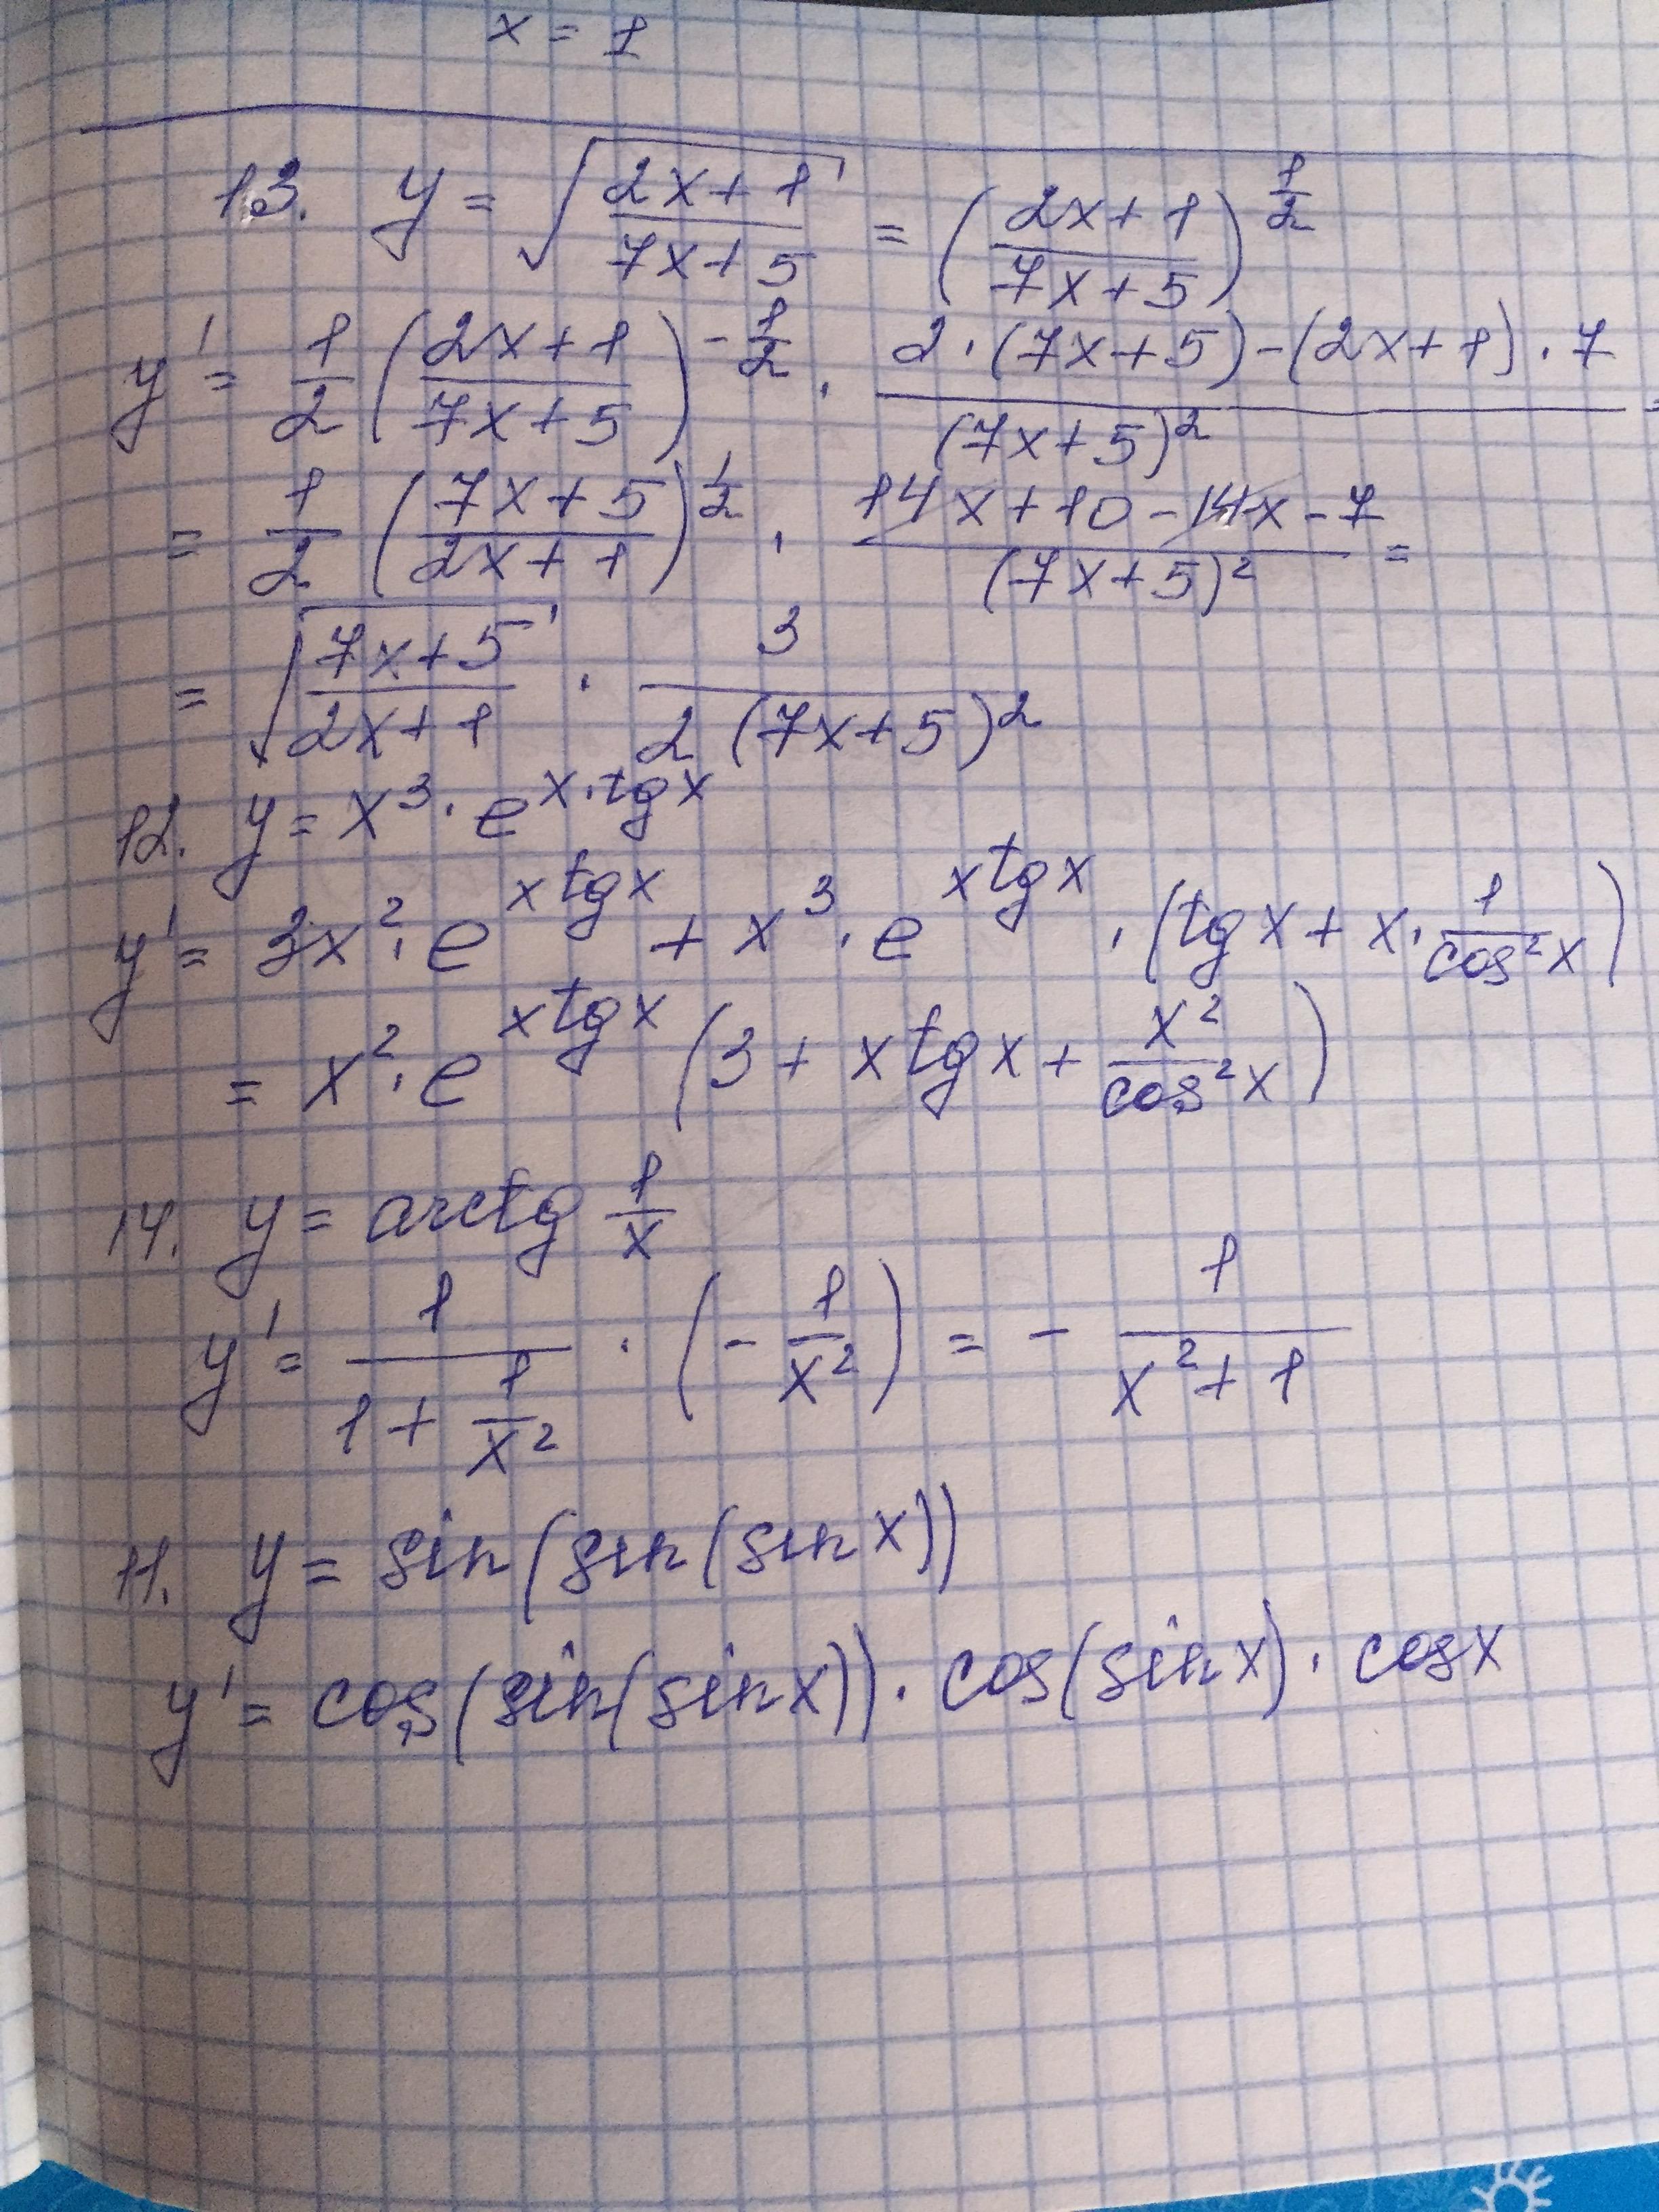 x = 1
13. y = √((2x+1)/(7x+5)) = ((2x+1)/(7x+5))^(1/2)
y' = 1/2 ((2x+1)/(7x+5))^(-1/2) · (2·(7x+5)-(2x+1)·7)/(7x+5)² =
= 1/2 ((7x+5)/(2x+1))^(1/2) · (14x+10-14x-7)/(7x+5)² =
= √((7x+5)/(2x+1)) · 3/(2(7x+5)²)
12. y = x³·e^(x·tgx)
y' = 3x²·e^(xtgx) + x³·e^(xtgx)·(tgx + x·1/cos²x)
= x²·e^(xtgx) (3 + xtgx + x²/cos²x)
14. y = arctg 1/x
y' = 1/(1+1/x²) · (-1/x²) = - 1/(x²+1)
11. y = sin(sin(sinx))
y' = cos(sin(sinx))·cos(sinx)·cosx